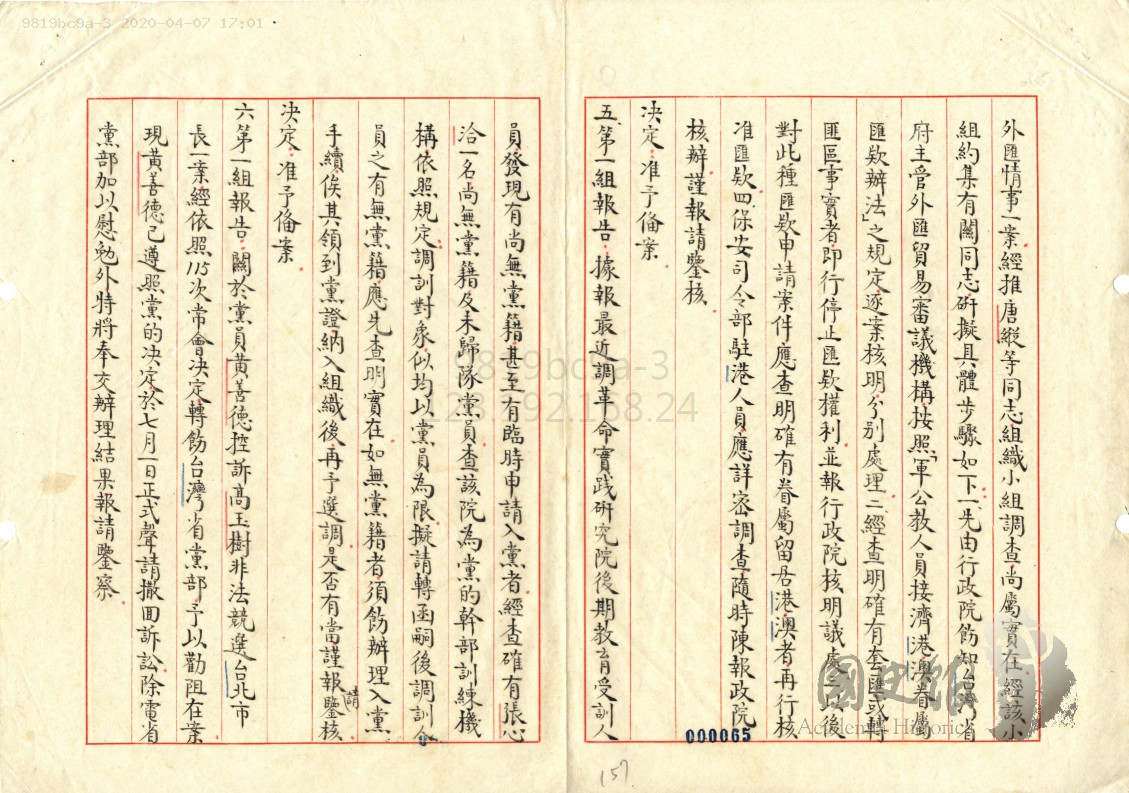 9819bc9a-3 2020-04-07 17:01
外匯情事一案經推唐縱等同志組織小組調查尚屬實在經該小
組約集有關同志研擬具體步驟如下一先由行政院飭知台灣省
府主管外匯貿易審議機構按照「軍公教人員接濟港澳眷屬
匯欵辦法」之規定逐案核明分別處理二經查明確有套匯或轉
匯匪區事實者即行停止匯欵權利並報行政院核明議處三以後
對此種匯欵申請案件應查明確有眷屬留居港澳者再行核
准匯欵四保安司令部駐港人員應詳密調查隨時陳報政院
核辦謹報請鑒核
決定：准予備案
五、第一組報告：據報最近調革命實踐研究院後期教育受訓人
員發現有尚無黨籍甚至有臨時申請入黨者經查確有張心
洽一名尚無黨籍及未歸隊黨員查該院為黨的幹部訓練機
構依照規定調訓對象似均以黨員為限擬請轉函嗣後調訓人
員之有無黨籍應先查明實在如無黨籍者須飭辦理入黨
手續俟其領到黨證納入組織後再予選調是否有當謹報請鑒核
決定：准予備案
六、第一組報告：關於黨員黃善德控訴高玉樹非法競選台北市
長一案經依照115次常會決定轉飭台灣省黨部予以勸阻在案
現黃善德已遵照黨的決定於七月一日正式聲請撤回訴訟除電省
黨部加以慰勉外特將奉交辦理結果報請鑒察
000065
157
國史館
Academia Historica